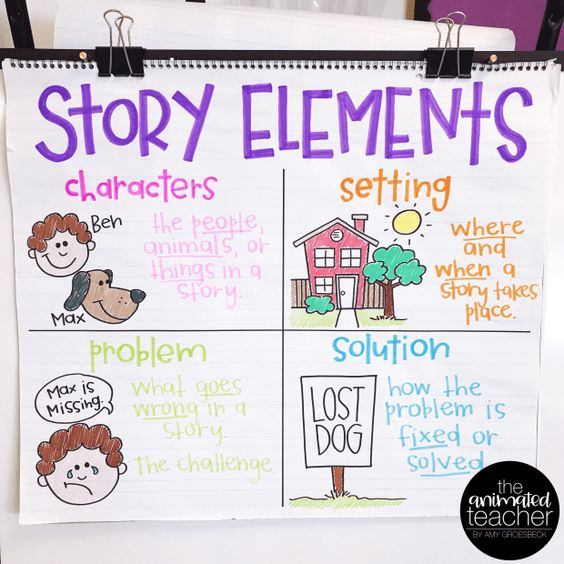 STORY ELEMENTS
characters
Ben
Max
the people,
animals, or
things in a
story.
setting
where
and
when a
story takes
place.
problem
Max is
Missing.
what goes
wrong in a
story.
The challenge.
solution
LOST
DOG
how the
problem is
fixed or
solved.
the
animated
teacher
BY AMY GROESBECK